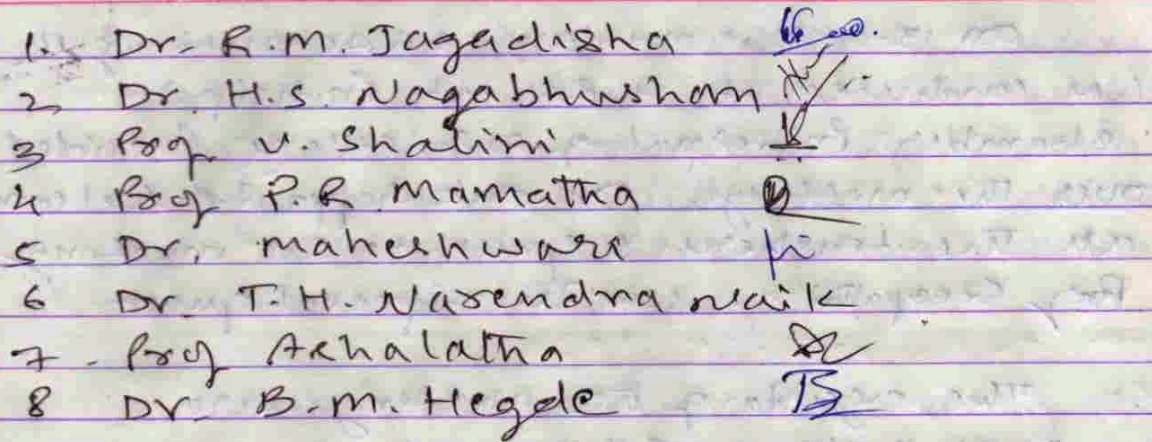 1. Dr. R.M. Jagadisha
2 Dr. H.S. Nagabhusham
3 Prof V. Shalini
4 Prof P.R. Mamatha
5 Dr. Maheshwari
6 Dr. T.H. Narendra Naik
7. Prof Ashalatha
8 Dr. B.M. Hegde